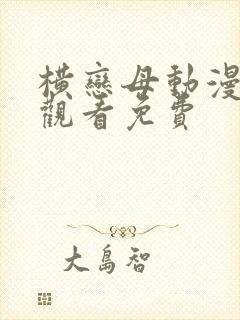 橫戀母動漫
觀看免費
大島智